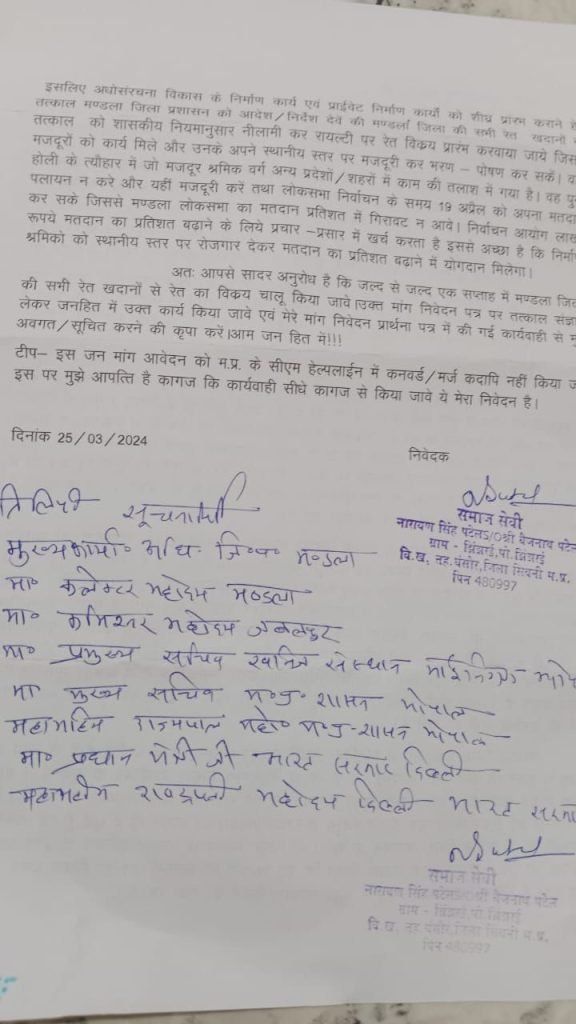 इसलिए अधोसंरचना विकास के निर्माण कार्य एवं प्राईवेट निर्माण कार्यो को शीघ्र प्रारंभ कराने हे
तत्काल मण्डला जिला प्रशासन को आदेश/निर्देश देवें की मण्डला जिला की सभी रेत खदानों
तत्काल को शासकीय नियमानुसार नीलामी कर रायल्टी पर रेत विक्रय प्रारंभ करवाया जाये जिस
मजदूरों को कार्य मिले और उनके अपने स्थानीय स्तर पर मजदूरी कर भरण – पोषण कर सकें। व
होली के त्यौहार में जो मजदूर श्रमिक वर्ग अन्य प्रदेशों/शहरों में काम की तलाश में गया है। वह पु
पलायन न करे और यहीं मजदूरी करें तथा लोकसभा निर्वाचन के समय 19 अप्रैल को अपना मतद
कर सके जिससे मण्डला लोकसभा का मतदान प्रतिशत में गिरावट न आवे। निर्वाचन आयोग लाख
रूपये मतदान का प्रतिशत बढाने के लिये प्रचार –प्रसार में खर्च करता है इससे अच्छा है कि निर्मा
श्रमिको को स्थानीय स्तर पर रोजगार देकर मतदान का प्रतिशत बढाने में योगदान मिलेगा।
अतः आपसे सादर अनुरोध है कि जल्द से जल्द एक सप्ताह में मण्डला जिल
की सभी रेत खदानों से रेत का विक्रय चालू किया जावे।उक्त मांग निवेदन पत्र पर तत्काल संज्ञा
लेकर जनहित में उक्त कार्य किया जावे एवं मेरे मांग निवेदन प्रार्थना पत्र में की गई कार्यवाही से मु
अवगत/सूचित करने की कृपा करें।आम जन हित में!!!
टीप– इस जन मांग आवेदन को म.प्र. के सीएम हेल्पलाईन में कनवर्ड/मर्ज कदापि नहीं किया ज
इस पर मुझे आपत्ति है कागज कि कार्यवाही सीधे कागज से किया जावे ये मेरा निवेदन है।
दिनांक 25/03/2024
निवेदक
समाज सेवी
नारायण सिंह पटेलS/Oश्री बैजनाथ पटेल
ग्राम - झिंझरई,पो.झिंझरई
वि.ख. तह.घंसौर,जिला सिवनी म.प्र.
पिन 480997
सूचनार्थ
मुख्यकार्या० अधि. जि.प. मण्डला
मा० कलेक्टर महोदय मण्डला
मा० कमिश्नर महोदय जबलपुर
मा० प्रमुख सचिव खनिज संस्थान माईनिंग
मा मुख्य सचिव म०प्र० शासन भोपाल
महामहिम राज्यपाल महो० म०प्र० शासन भोपाल
मा० प्रधान मंत्री जी भारत सरकार दिल्ली
महामहीम राष्ट्रपती महोदय दिल्ली भारत सरका
समाज सेवी
नारायण सिंह पटेलS/Oश्री बैजनाथ पटेल
ग्राम - झिंझरई,पो.झिंझरई
वि.ख. तह.घंसौर,जिला सिवनी म.प्र.
पिन 480997